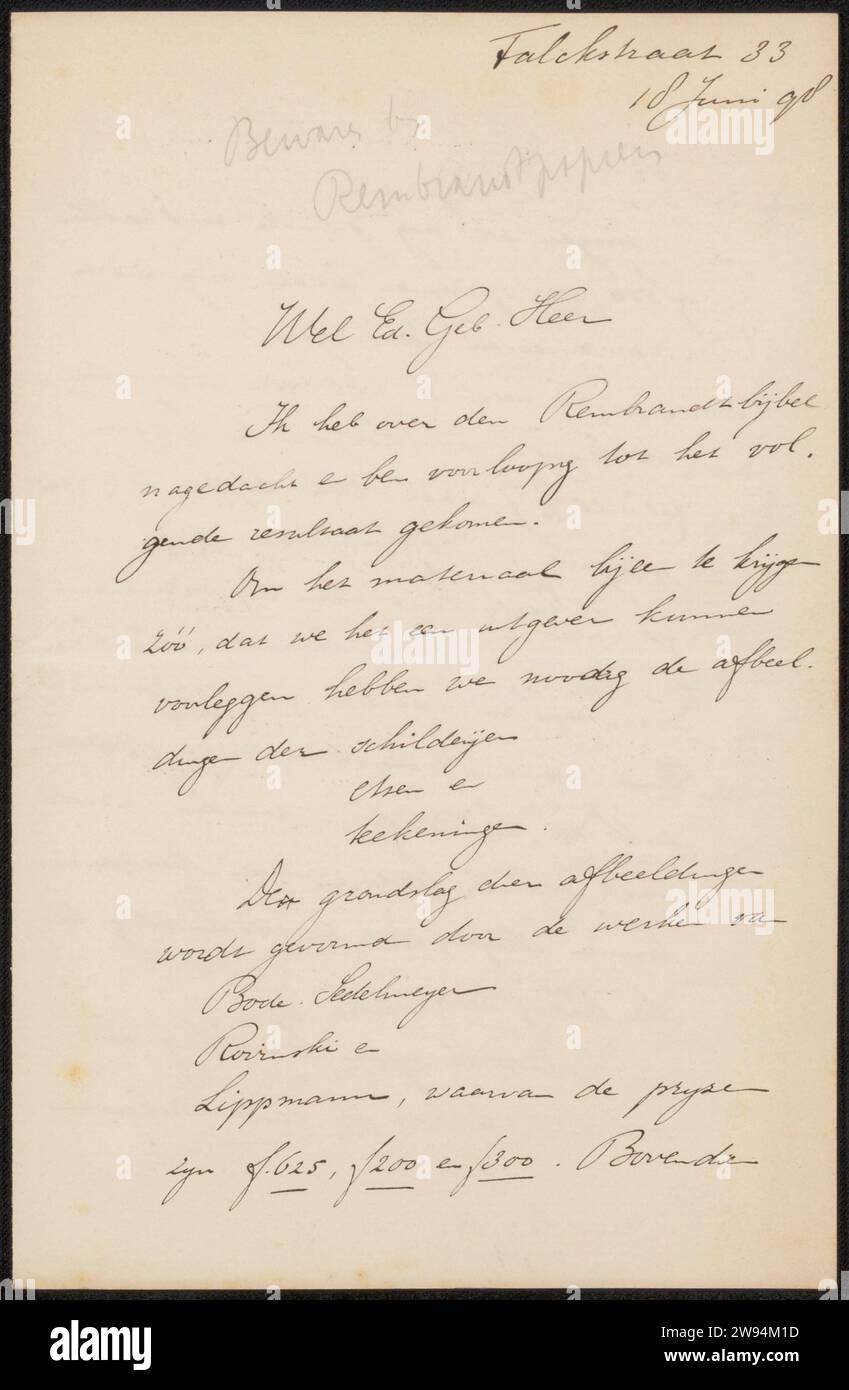 Falckstraat 33
18 Juni 98
Bewaren bij
Rembrandtpapieren
Wel Ed. Geb. Heer
Ik heb over den Rembrandtbijbel
nagedacht en ben voorloopig tot het vol-
gende resultaat gekomen.
Om het materiaal bijeen te krijgen
zóó, dat we het een uitgever kunnen
voorleggen hebben we noodig de afbeel-
dingen der schilderijen
etsen en
teekeningen.
De grondslag dier afbeeldingen
wordt gevormd door de werken van
Bode. Sedelmeyer
Rovinski en
Lippmann, waarvan de prijzen
zijn f. 625, f 200 en f 300. Bovendien
alamy
Image ID: 2W94M1D
www.alamy.com